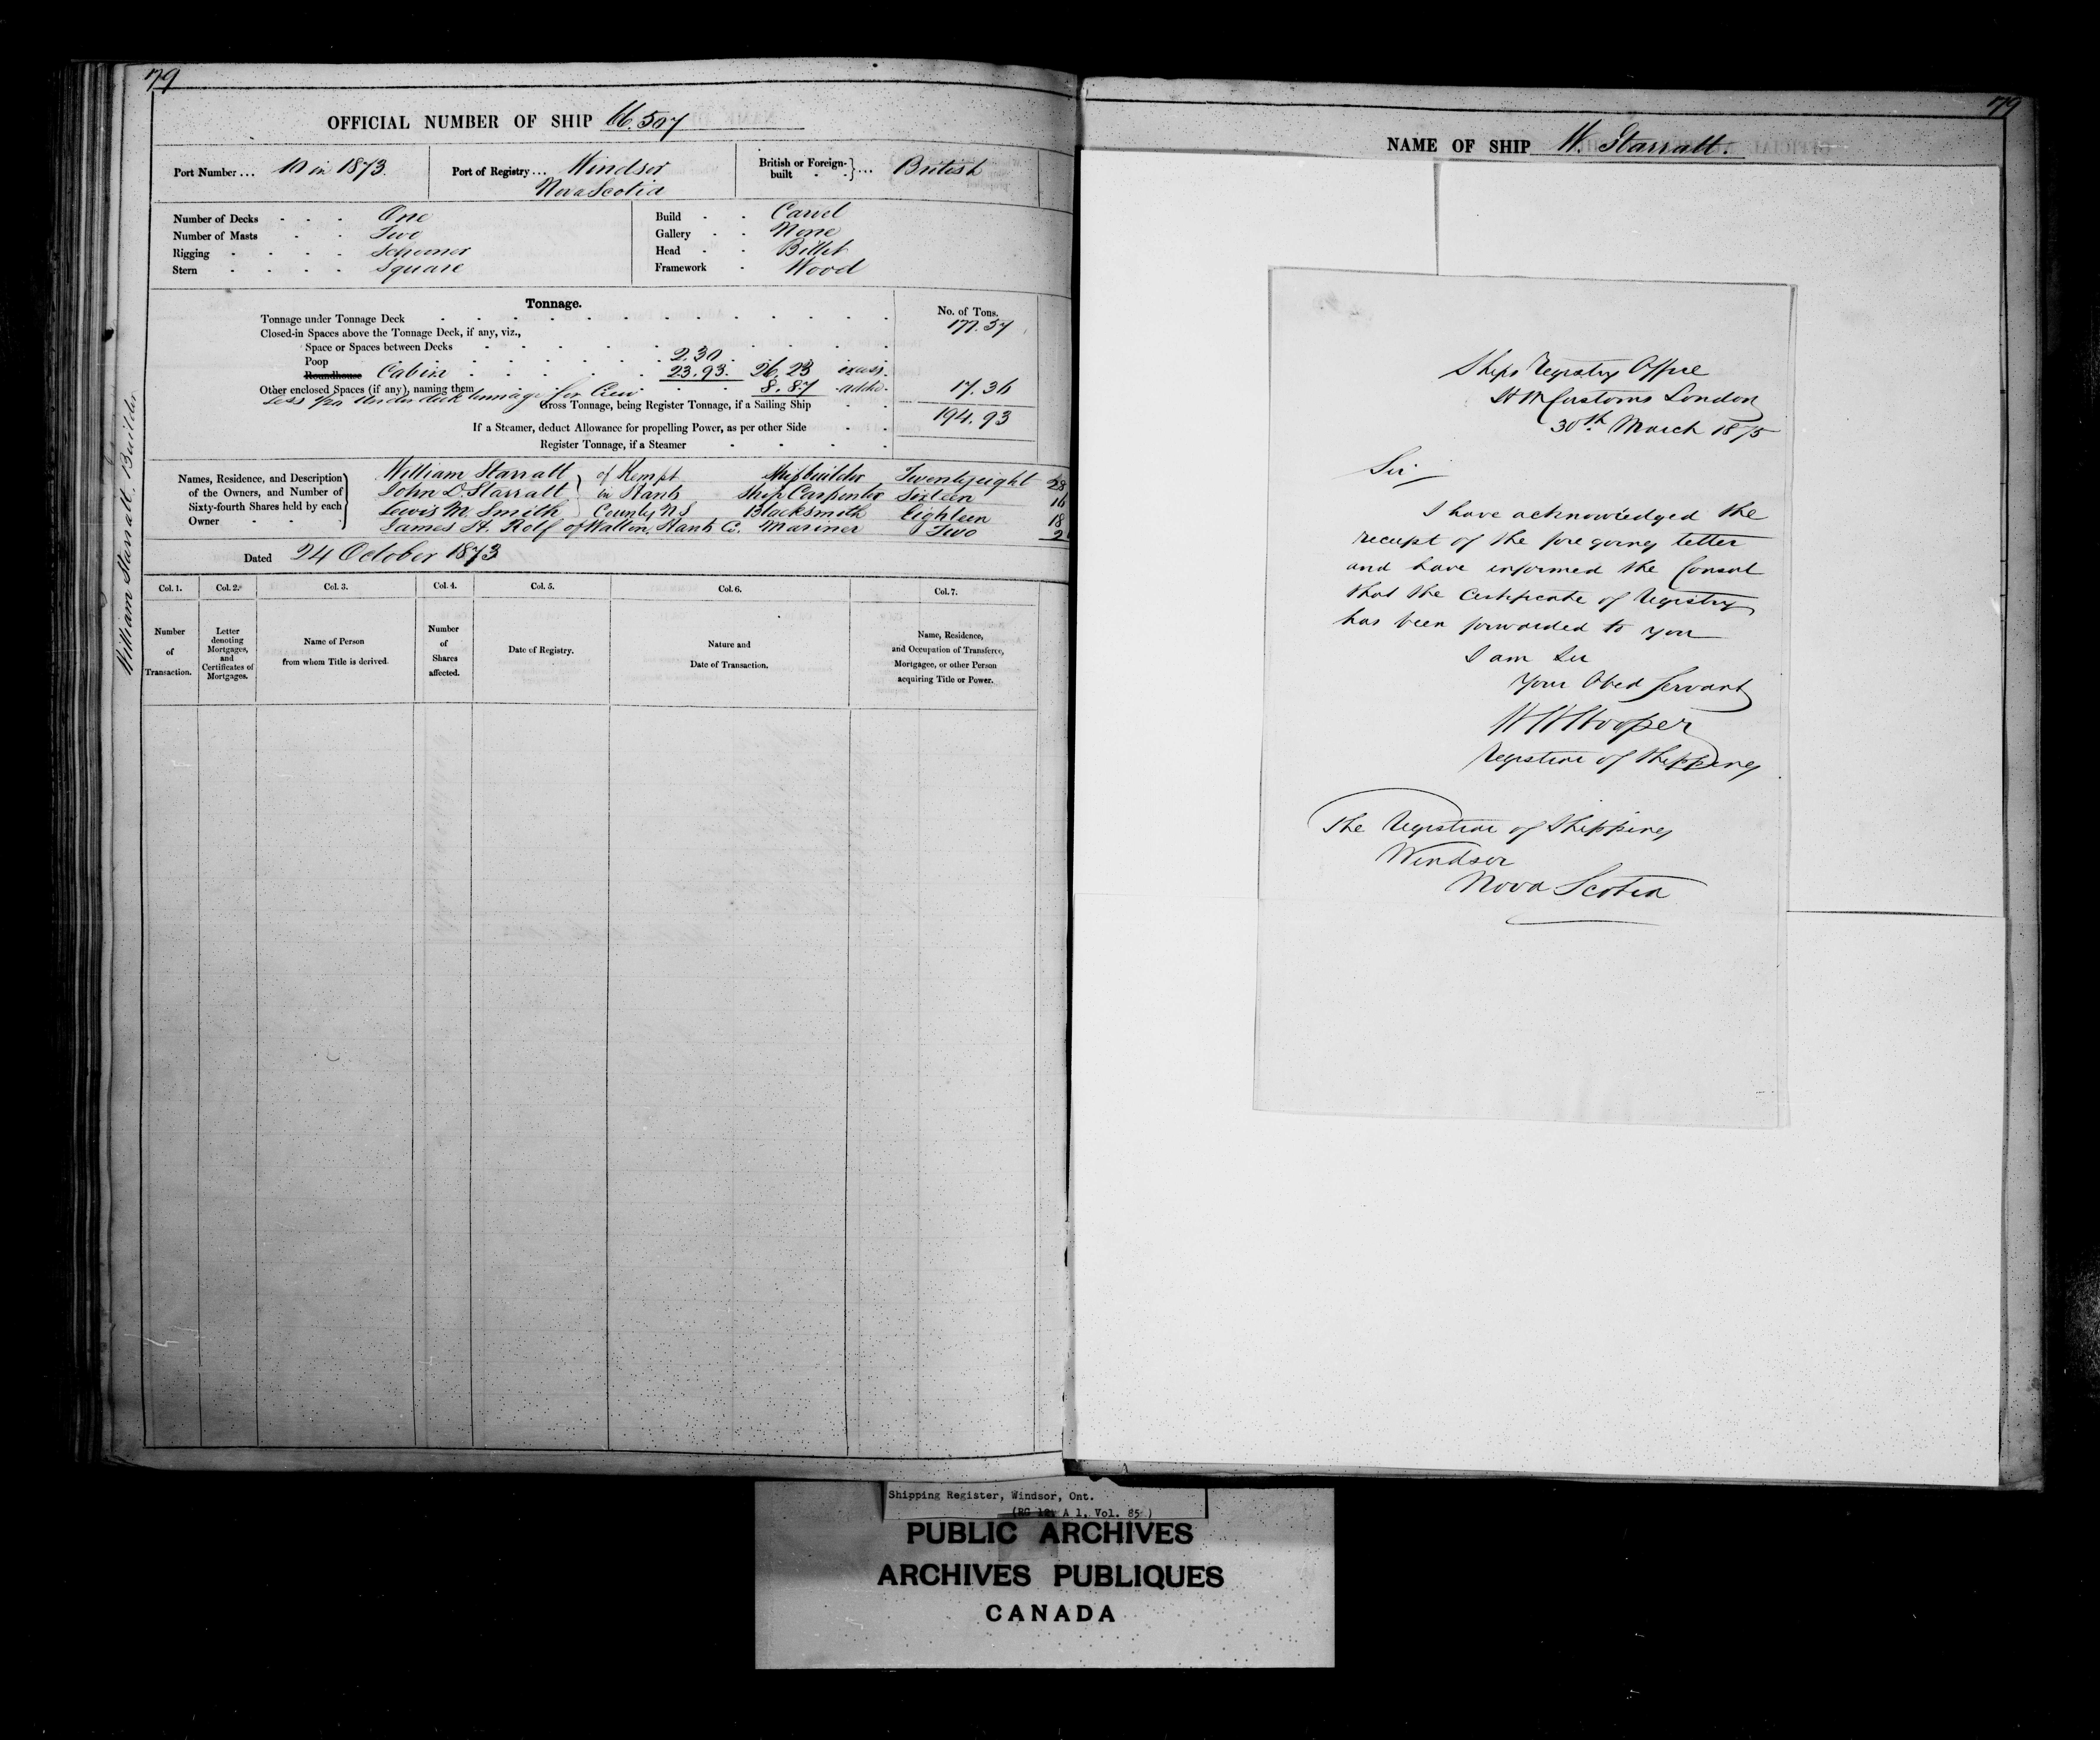 79
OFFICIAL NUMBER OF SHIP 66.507
Port Number ... 10 in 1873.
Port of Registry ... Windsor
Nova Scotia
British or Foreign-built ... British
Number of Decks - - - One
Number of Masts - - Two
Rigging - - - - Schooner
Stern - - - - Square
Build - - Carvel
Gallery - - None
Head - - Billet
Framework - Wood
Tonnage.
No. of Tons.
Tonnage under Tonnage Deck 177.57
Closed-in Spaces above the Tonnage Deck, if any, viz.,
Space or Spaces between Decks
Poop 2.30
Roundhouse Cabin 23.93. 26.23 excess.
Other enclosed Spaces (if any), naming them 8.87 added. 17.36
Less 1/20 under deck tunnage for Crew
Gross Tonnage, being Register Tonnage, if a Sailing Ship 194.93
If a Steamer, deduct Allowance for propelling Power, as per other Side
Register Tonnage, if a Steamer
Names, Residence, and Description of the Owners, and Number of Sixty-fourth Shares held by each Owner
William Starratt of Kempt Shipbuilder Twentyeight 28
John D. Starratt in Hants Ship Carpenter Sixteen 16
Lewis M. Smith County NS Blacksmith Eighteen 18
James H. Rolf of Walton, Hants Co. Mariner Two 2
Dated 24 October 1873
Col. 1. Col. 2. Col. 3. Col. 4. Col. 5. Col. 6. Col. 7.
Number of Transaction.
Letter denoting Mortgages, and Certificates of Mortgages.
Name of Person from whom Title is derived.
Number of Shares affected.
Date of Registry.
Nature and Date of Transaction.
Name, Residence, and Occupation of Transferee, Mortgagee, or other Person acquiring Title or Power.
William Starratt. Builder
79
NAME OF SHIP W. Starratt.
Ships Registry Office
H M Customs London
30th March 1875
Sir
I have acknowledged the
receipt of the fore going letter
and have informed the Consul
that the Certificate of Registry
has been forwarded to you
I am Sir
Your Obed Servant
W H Hooper
Registrar of Shipping
The Registrar of Shipping
Windsor
Nova Scotia
Shipping Register, Windsor, Ont.
(RG 12, A 1, Vol. 85)
PUBLIC ARCHIVES
ARCHIVES PUBLIQUES
CANADA